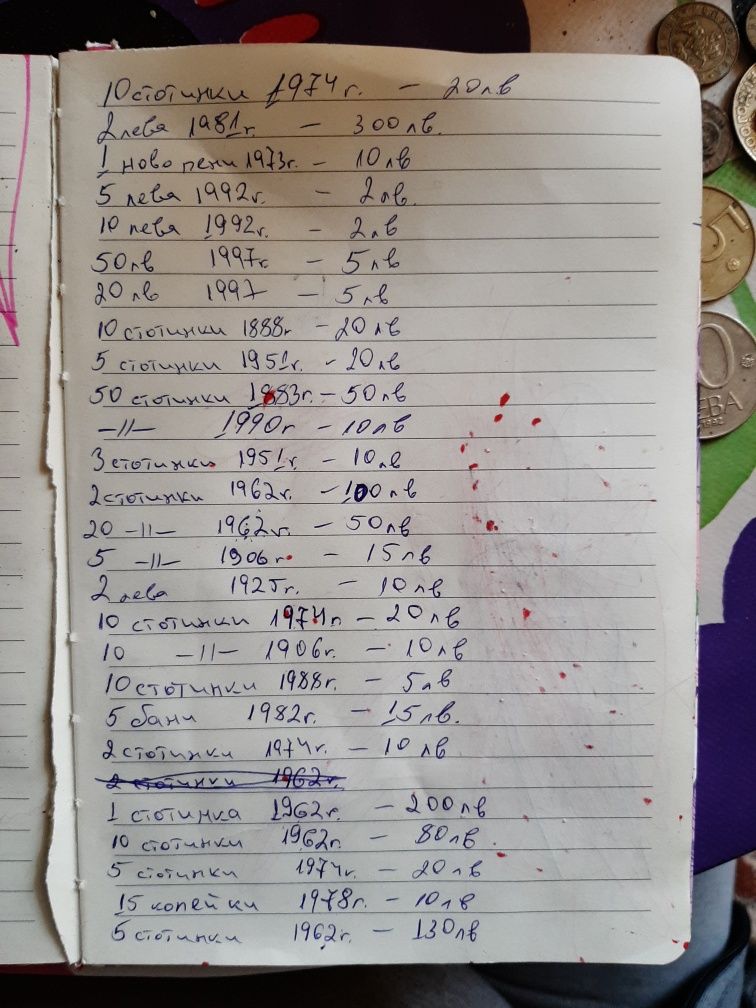 10 стотинки 1974г. - 20лв
2 лева 1981г. - 300лв.
1 ново пени 1973г. - 10лв
5 лева 1992г. - 2лв.
10 лева 1992г. - 2лв
50лв 1997г. - 5лв
20 лв 1997 - 5лв
10 стотинки 1888г - 20лв
5 стотинки 1951г. - 20лв
50 стотинки 1883г. - 50лв
-//- 1990г - 10лв
3 стотинки 1951г. - 10лв
2 стотинки 1962г. - 100лв
20 -//- 1962г. - 50лв
5 -//- 1906г. - 15лв
2 лева 1925г. - 10лв
10 стотинки 1974г. - 20лв
10 -//- 1906г. - 10лв
10 стотинки 1988г. - 5лв
5 бани 1982г. - 15лв.
2 стотинки 1974г. - 10лв
2 стотинки 1962г.
1 стотинка 1962г. - 200лв
10 стотинки 1962г. - 80лв.
5 стотинки 1974г. - 20лв
15 копейки 1978г. - 10лв
5 стотинки 1962г. - 130лв
5
1992